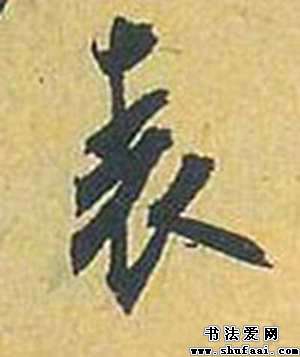 表
书法爱网
www.shufaai.com